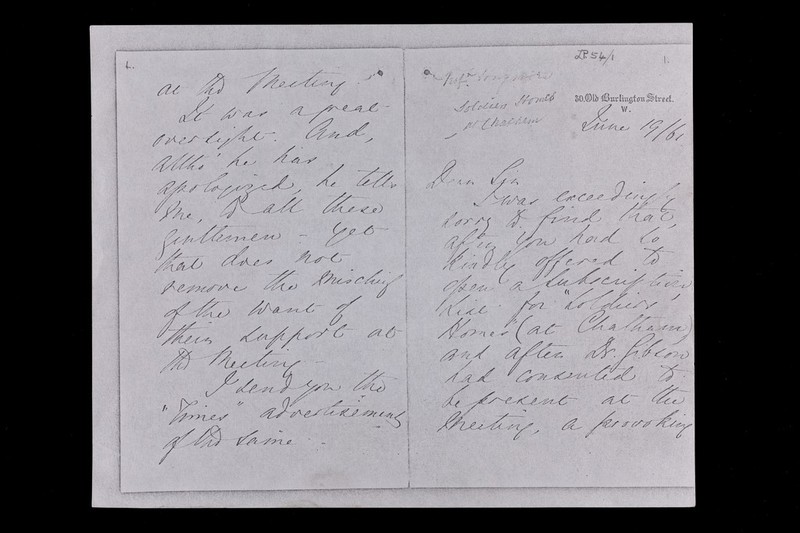 RP 54/1
1.
Soldiers Homes
at Chatham
30, Old Burlington Street.
W.
June 19/61
Dear Sir
I was exceedingly
sorry to find that,
after you had so
kindly offered to
open a subscription
list for "Soldiers'
Homes" (at Chatham)
and after Dr. Gibson
had consented to
be present at the
Meeting, a provoking
4.
at the Meeting.
It was a great
oversight. And,
altho' he has
apologized, he tells
me, to all these
gentlemen - yet
that does not
remove the mischief
of the want of
their support at
the Meeting -
I send you the
"Times" advertisement
of the same.